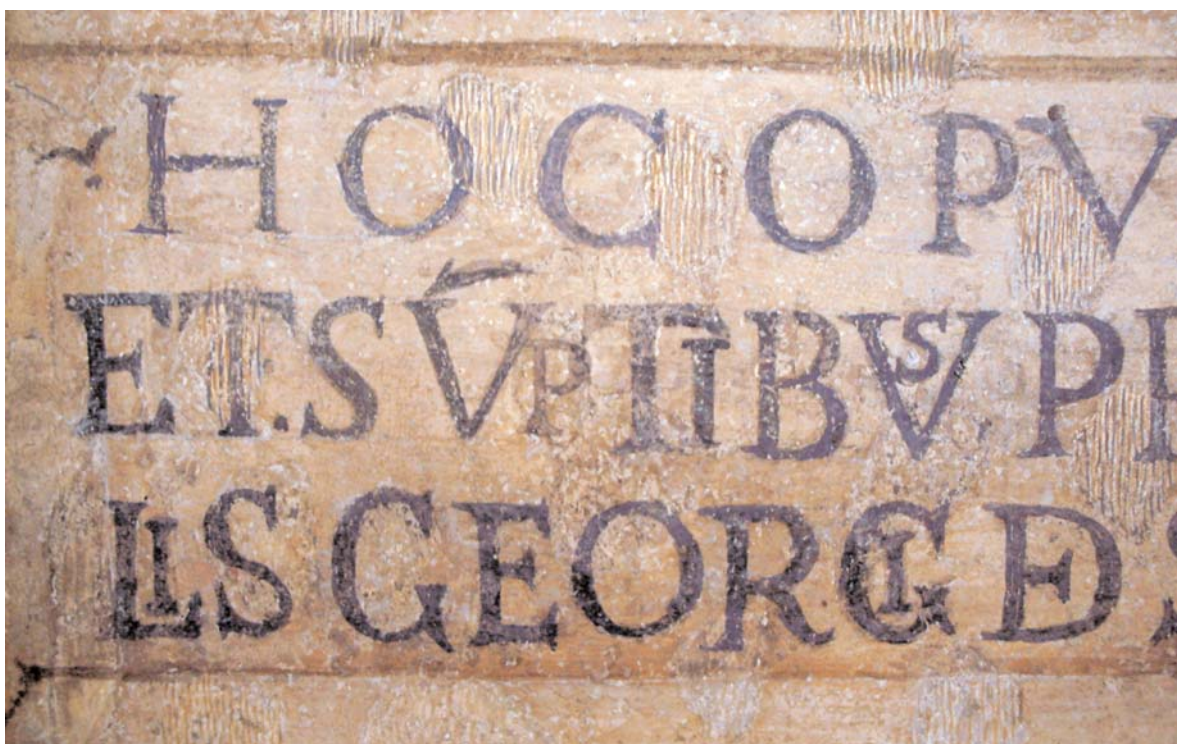 HOC OPV
ET. SV̄PTIBVS. PR
LIS GEORGI DE S